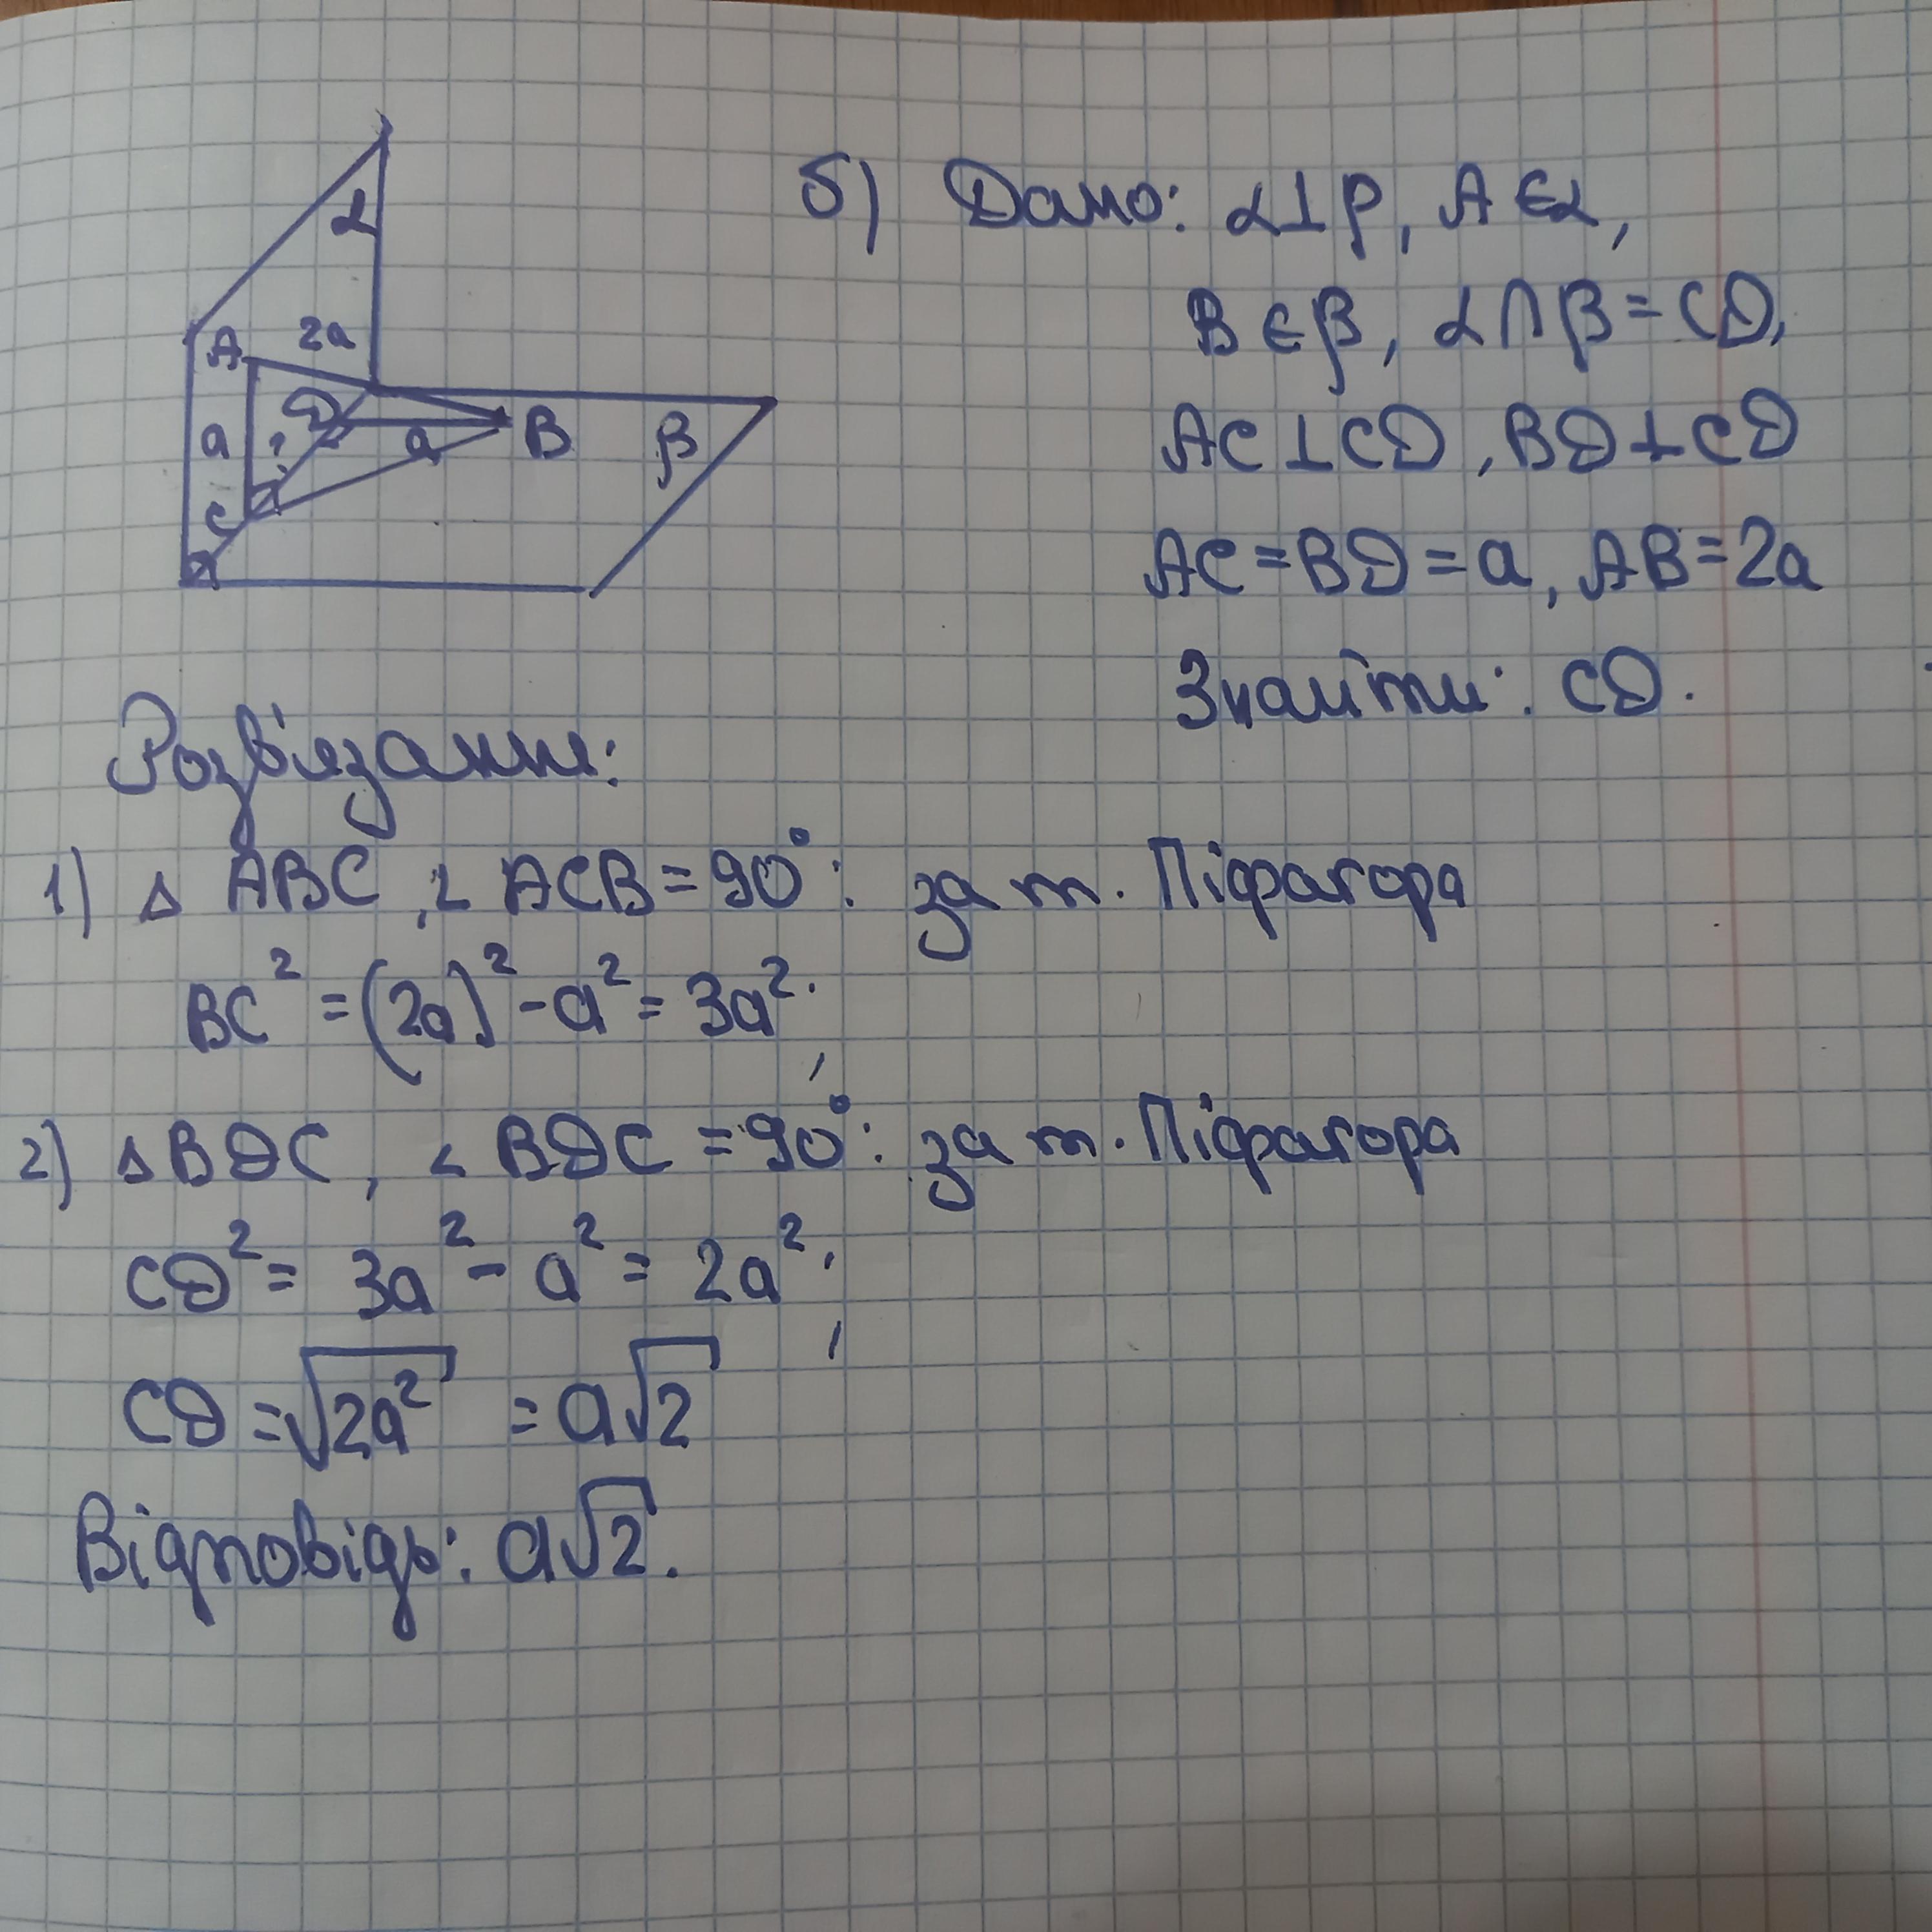 α
A
2a
D
a
?
a
B
β
C
б) Дано: α⊥β, A∈α,
B∈β, α∩β=CD,
AC⊥CD, BD⊥CD
AC=BD=a, AB=2a
Знайти: CD.
Розв'язання:
1) △ ABC, ∠ ACB=90°: за т. Піфагора
BC² = (2a)² - a² = 3a²;
2) △BDC, ∠ BDC = 90°: за т. Піфагора
CD² = 3a² - a² = 2a²;
CD = √2a² = a√2
Відповідь: a√2.